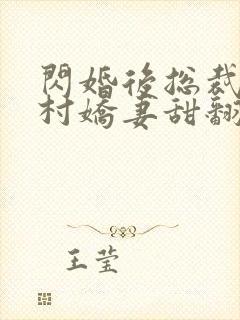 閃婚後總裁
村嬌妻甜翻
王莹